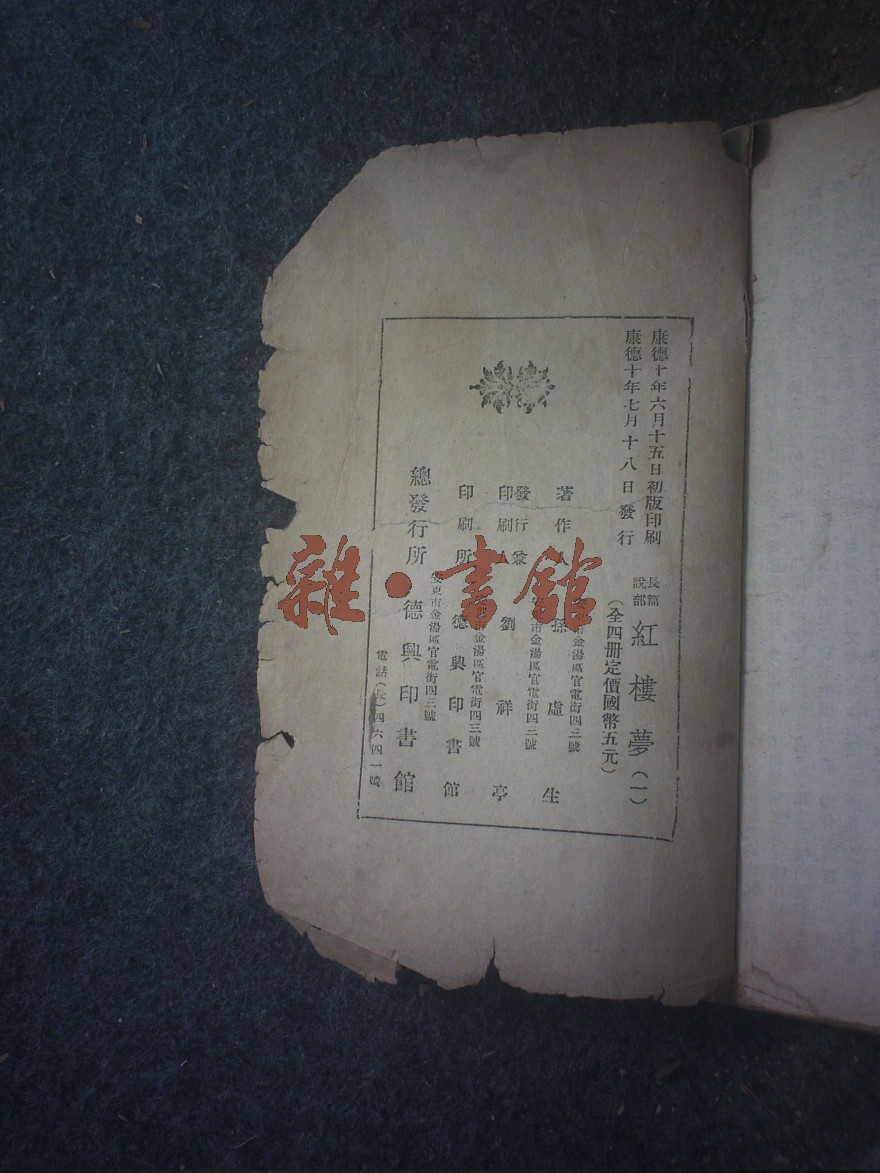 康德十年六月十五日初版印刷
康德十年七月十八日發行
長篇說部 紅樓夢(一)
(全四册定價國幣五元)
著作人 孫虛生
市金湯區官電街四三號
發行兼印刷人 劉祥亭
安東市金湯區官電街四三號
印刷所 德興印書館
市金湯區官電街四三號
總發行所 德興印書館
安東市金湯區官電街四三號
電話(長)四六四一號
雜·書館